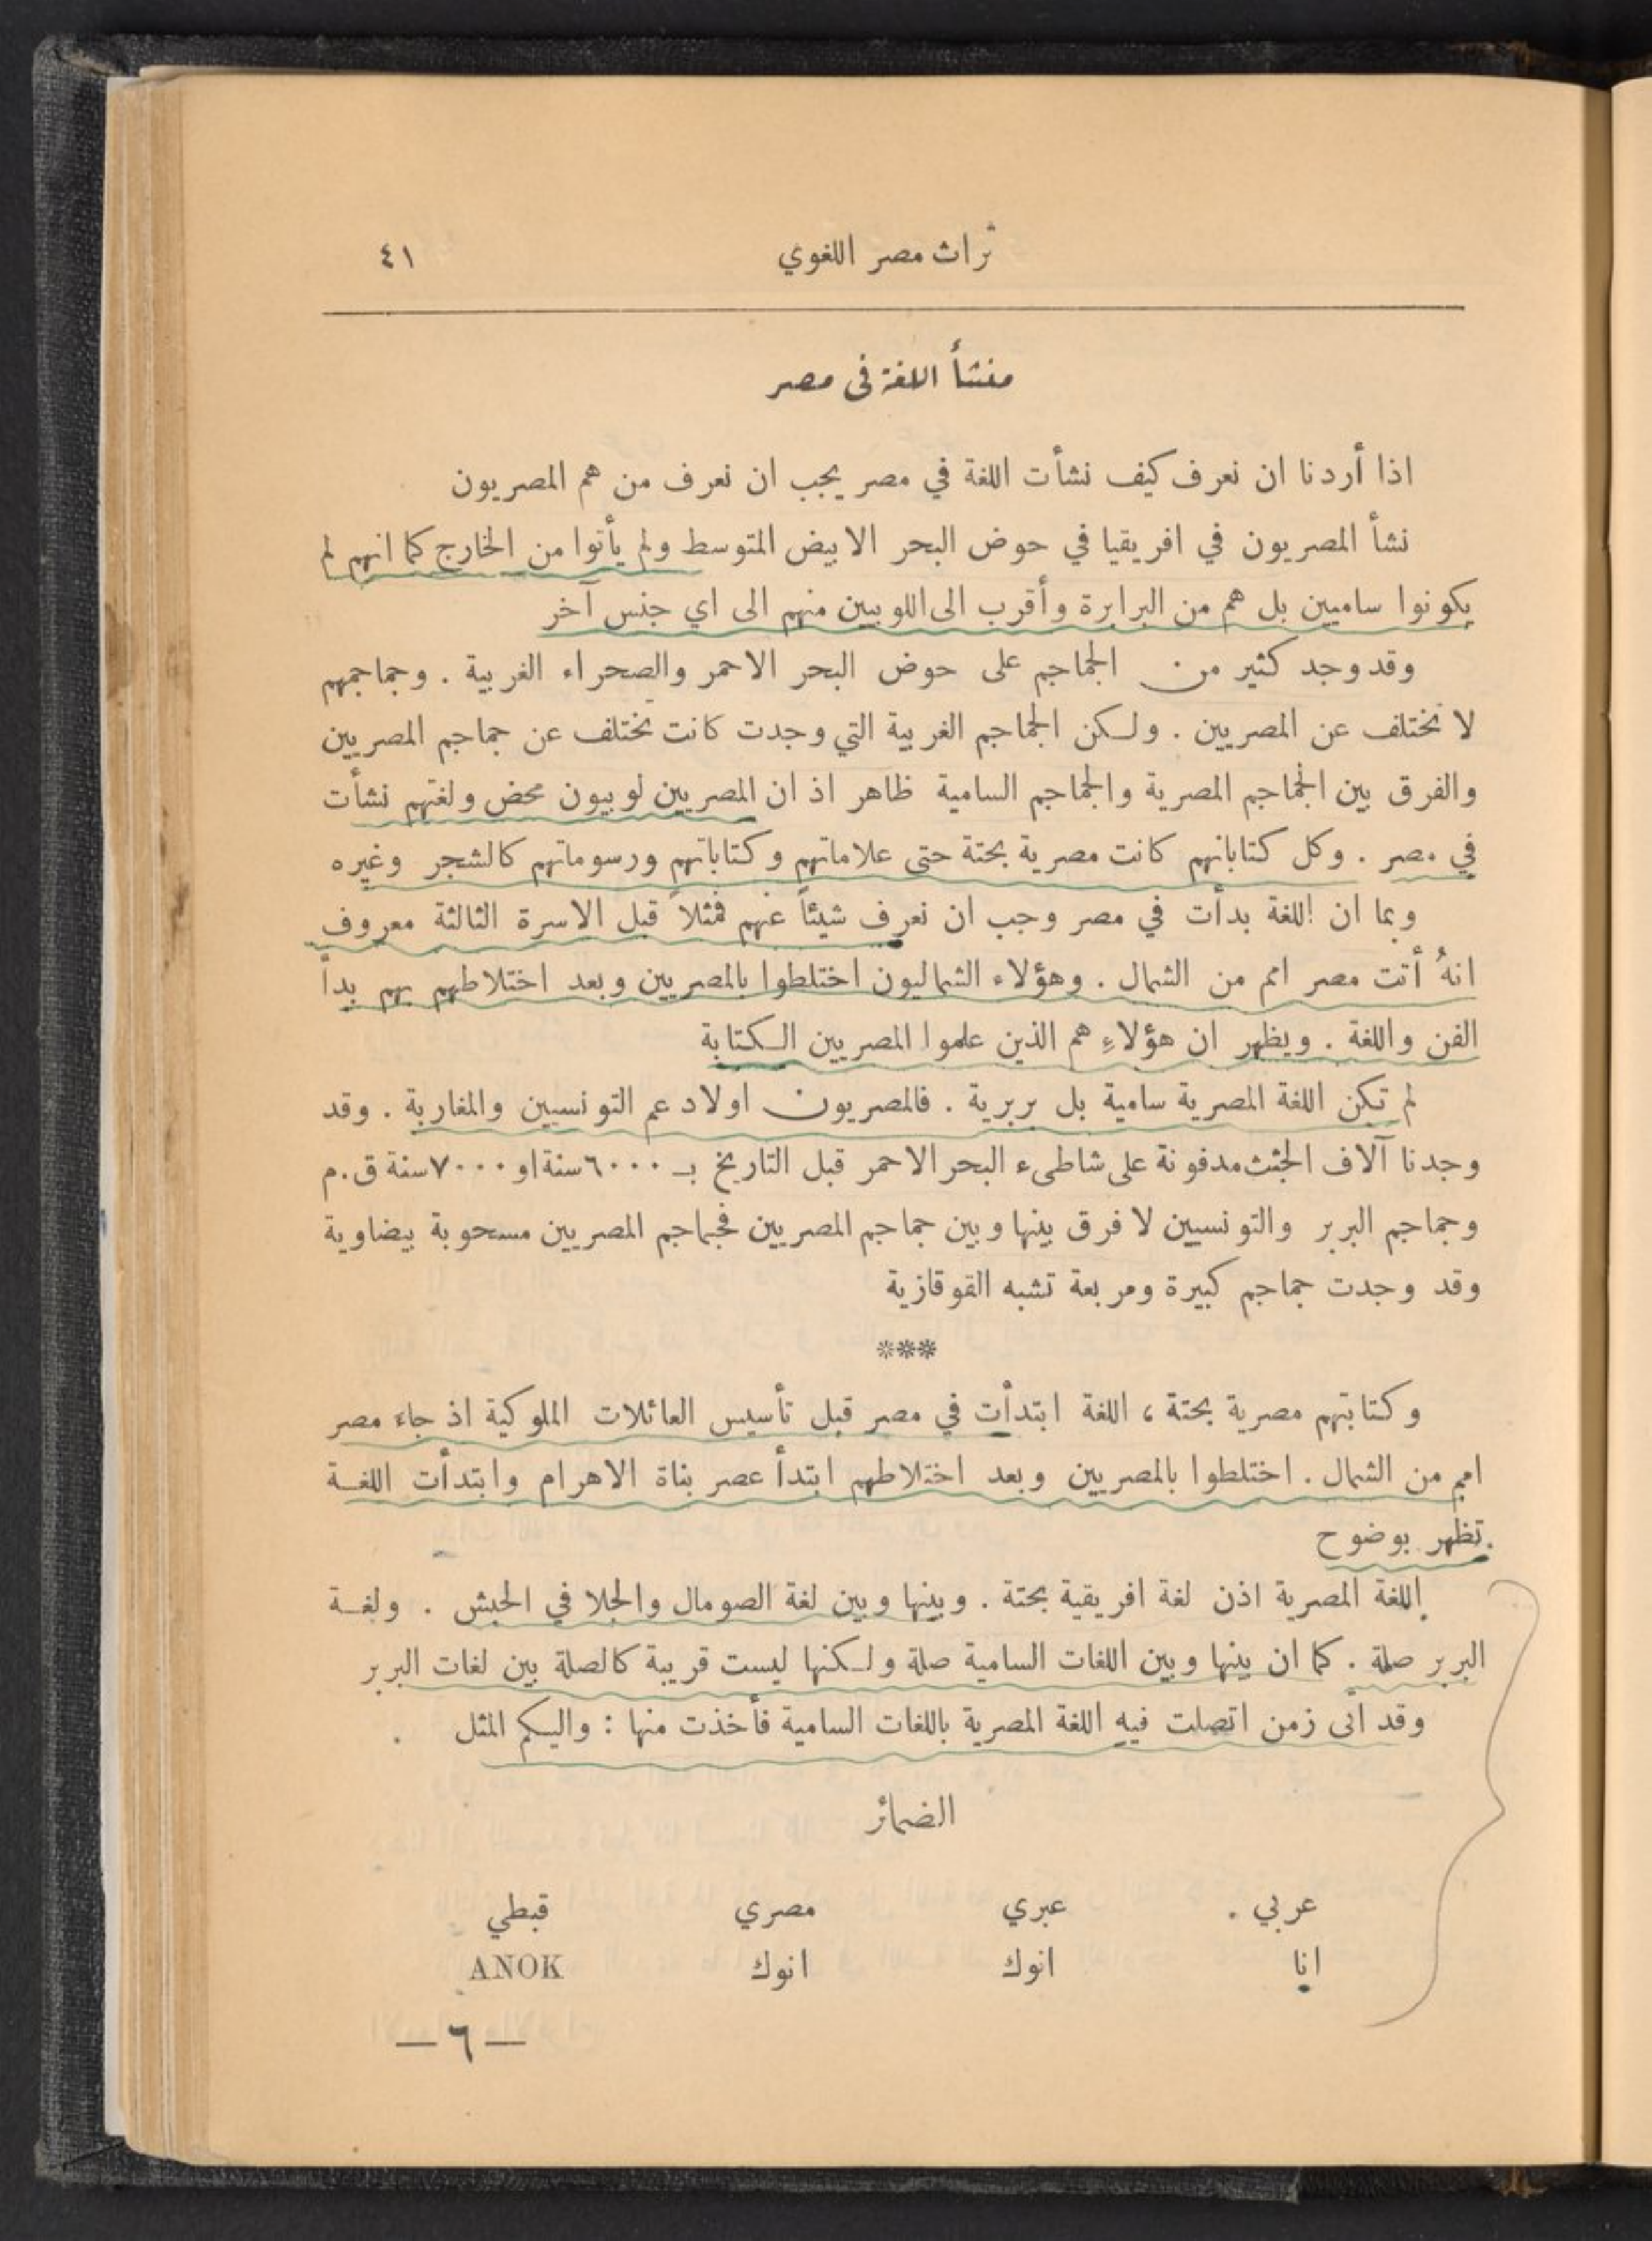 تراث مصر اللغوي ٤١
منشأ اللغة فى مصر
اذا أردنا ان نعرف كيف نشأت اللغة في مصر يجب ان نعرف من هم المصريون
نشأ المصريون في افريقيا في حوض البحر الابيض المتوسط ولم يأتوا من الخارج كما انهم لم
يكونوا ساميين بل هم من البرابرة وأقرب الى اللوبيين منهم الى اي جنس آخر
وقد وجد كثير من الجماجم على حوض البحر الاحمر والصحراء الغربية . وجماجمهم
لا تختلف عن المصريين . ولكن الجماجم الغربية التي وجدت كانت تختلف عن جماجم المصريين
والفرق بين الجماجم المصرية والجماجم السامية ظاهر اذ ان المصريين لوبيون محض ولغتهم نشأت
في مصر . وكل كتاباتهم كانت مصرية بحتة حتى علاماتهم وكتاباتهم ورسوماتهم كالشجر وغيره
وبما ان اللغة بدأت في مصر وجب ان نعرف شيئاً عنهم فمثلاً قبل الاسرة الثالثة معروف
انهُ أتت مصر امم من الشمال . وهؤلاء الشماليون اختلطوا بالمصريين وبعد اختلاطهم بهم بدأ
الفن واللغة . ويظهر ان هؤلاءِ هم الذين علموا المصريين الكتابة
لم تكن اللغة المصرية سامية بل بربرية . فالمصريون اولاد عم التونسيين والمغاربة . وقد
وجدنا آلاف الجثث مدفونة على شاطىء البحر الاحمر قبل التاريخ بـ ٦٠٠٠ سنة او ٧٠٠٠ سنة ق.م
وجماجم البربر والتونسيين لا فرق بينها وبين جماجم المصريين فجماجم المصريين مسحوبة بيضاوية
وقد وجدت جماجم كبيرة ومربعة تشبه القوقازية
***
وكتابتهم مصرية بحتة ، اللغة ابتدأت في مصر قبل تأسيس العائلات الملوكية اذ جاءَ مصر
امم من الشمال . اختلطوا بالمصريين وبعد اختلاطهم ابتدأ عصر بناة الاهرام وابتدأت اللغة
تظهر بوضوح
اللغة المصرية اذن لغة افريقية بحتة . وبينها وبين لغة الصومال والجلا في الحبش . ولغة
البربر صلة . كما ان بينها وبين اللغات السامية صلة ولكنها ليست قريبة كالصلة بين لغات البربر
وقد اتى زمن اتصلت فيه اللغة المصرية باللغات السامية فأخذت منها : واليكم المثل
الضمائر
عربي عبري مصري قبطي
انا انوك انوك ANOK
— ٦ —